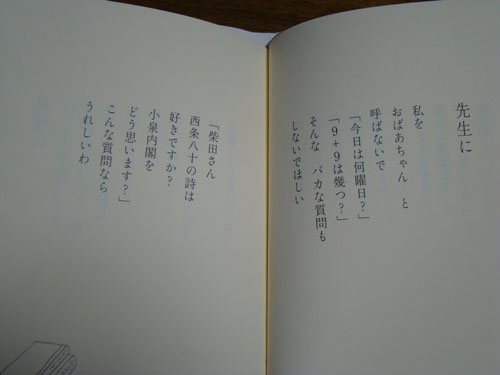 先生に
私を
おばあちゃん と
呼ばないで
「今日は何曜日?」
「9+9は幾つ?」
そんな バカな質問も
しないでほしい
「柴田さん
西条八十の詩は
好きですか?
小泉内閣を
どう思います?」
こんな質問なら
うれしいわ